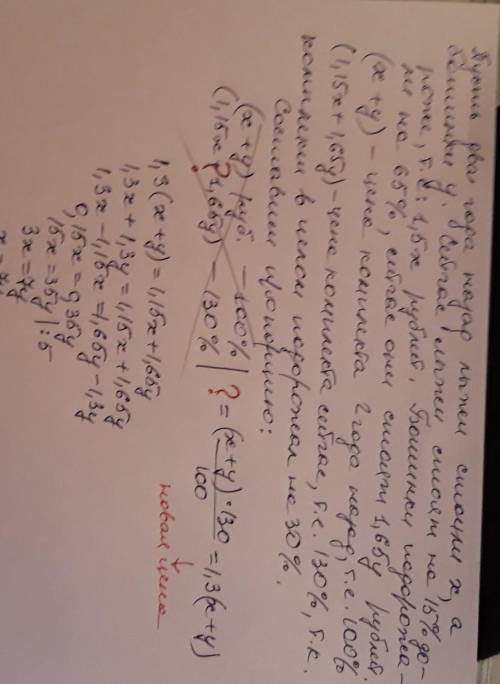 Пусть два года назад лыжи стоили x, а
ботинки y. Сейчас лыжи стоят на 15% до-
роже, т.е. 1,15x рублей. Ботинки подорожа-
ли на 65%, сейчас они стоят 1,65y рублей.
(x+y) – цена комплекта 2 года назад, т.е. 100%
(1,15x+1,65y) – цена комплекта сейчас, т.е. 130%, т.к.
комплект в целом подорожал на 30%.
Составим пропорцию:
(x+y) руб. – 100%
(1,15x ? 1,65y) – 130% | ? = (x+y)·130 / 100 = 1,3(x+y)
новая цена
1,3(x+y) = 1,15x+1,65y
1,3x + 1,3y = 1,15x + 1,65y
1,3x – 1,15x = 1,65y – 1,3y
0,15x = 0,35y
15x = 35y | : 5
3x = 7y